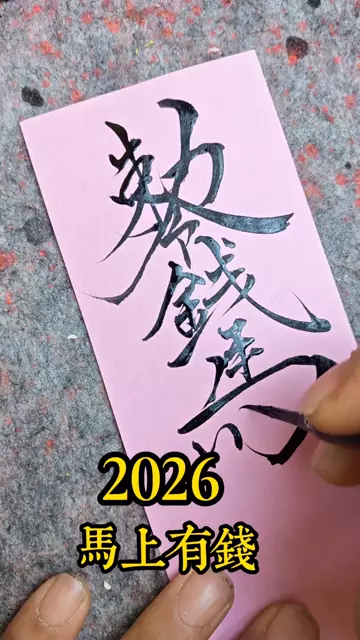 錢
馬
2026
馬上有錢